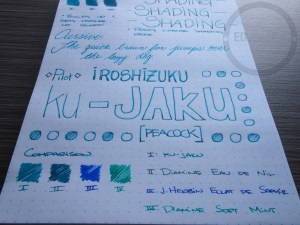 SHADING
SHADING
Cursive:
The quick brown fox jumps over
the lazy dog
Pilot IROSHIZUKU
ku-JAKU
[PEACOCK]
COMPARISON
I II III IV
I. KU-JAKU
II DIAMINE EAU DE NIL
III J. HERBIN ECLAT DE SAPHIR
IV DIAMINE SOFT MINT